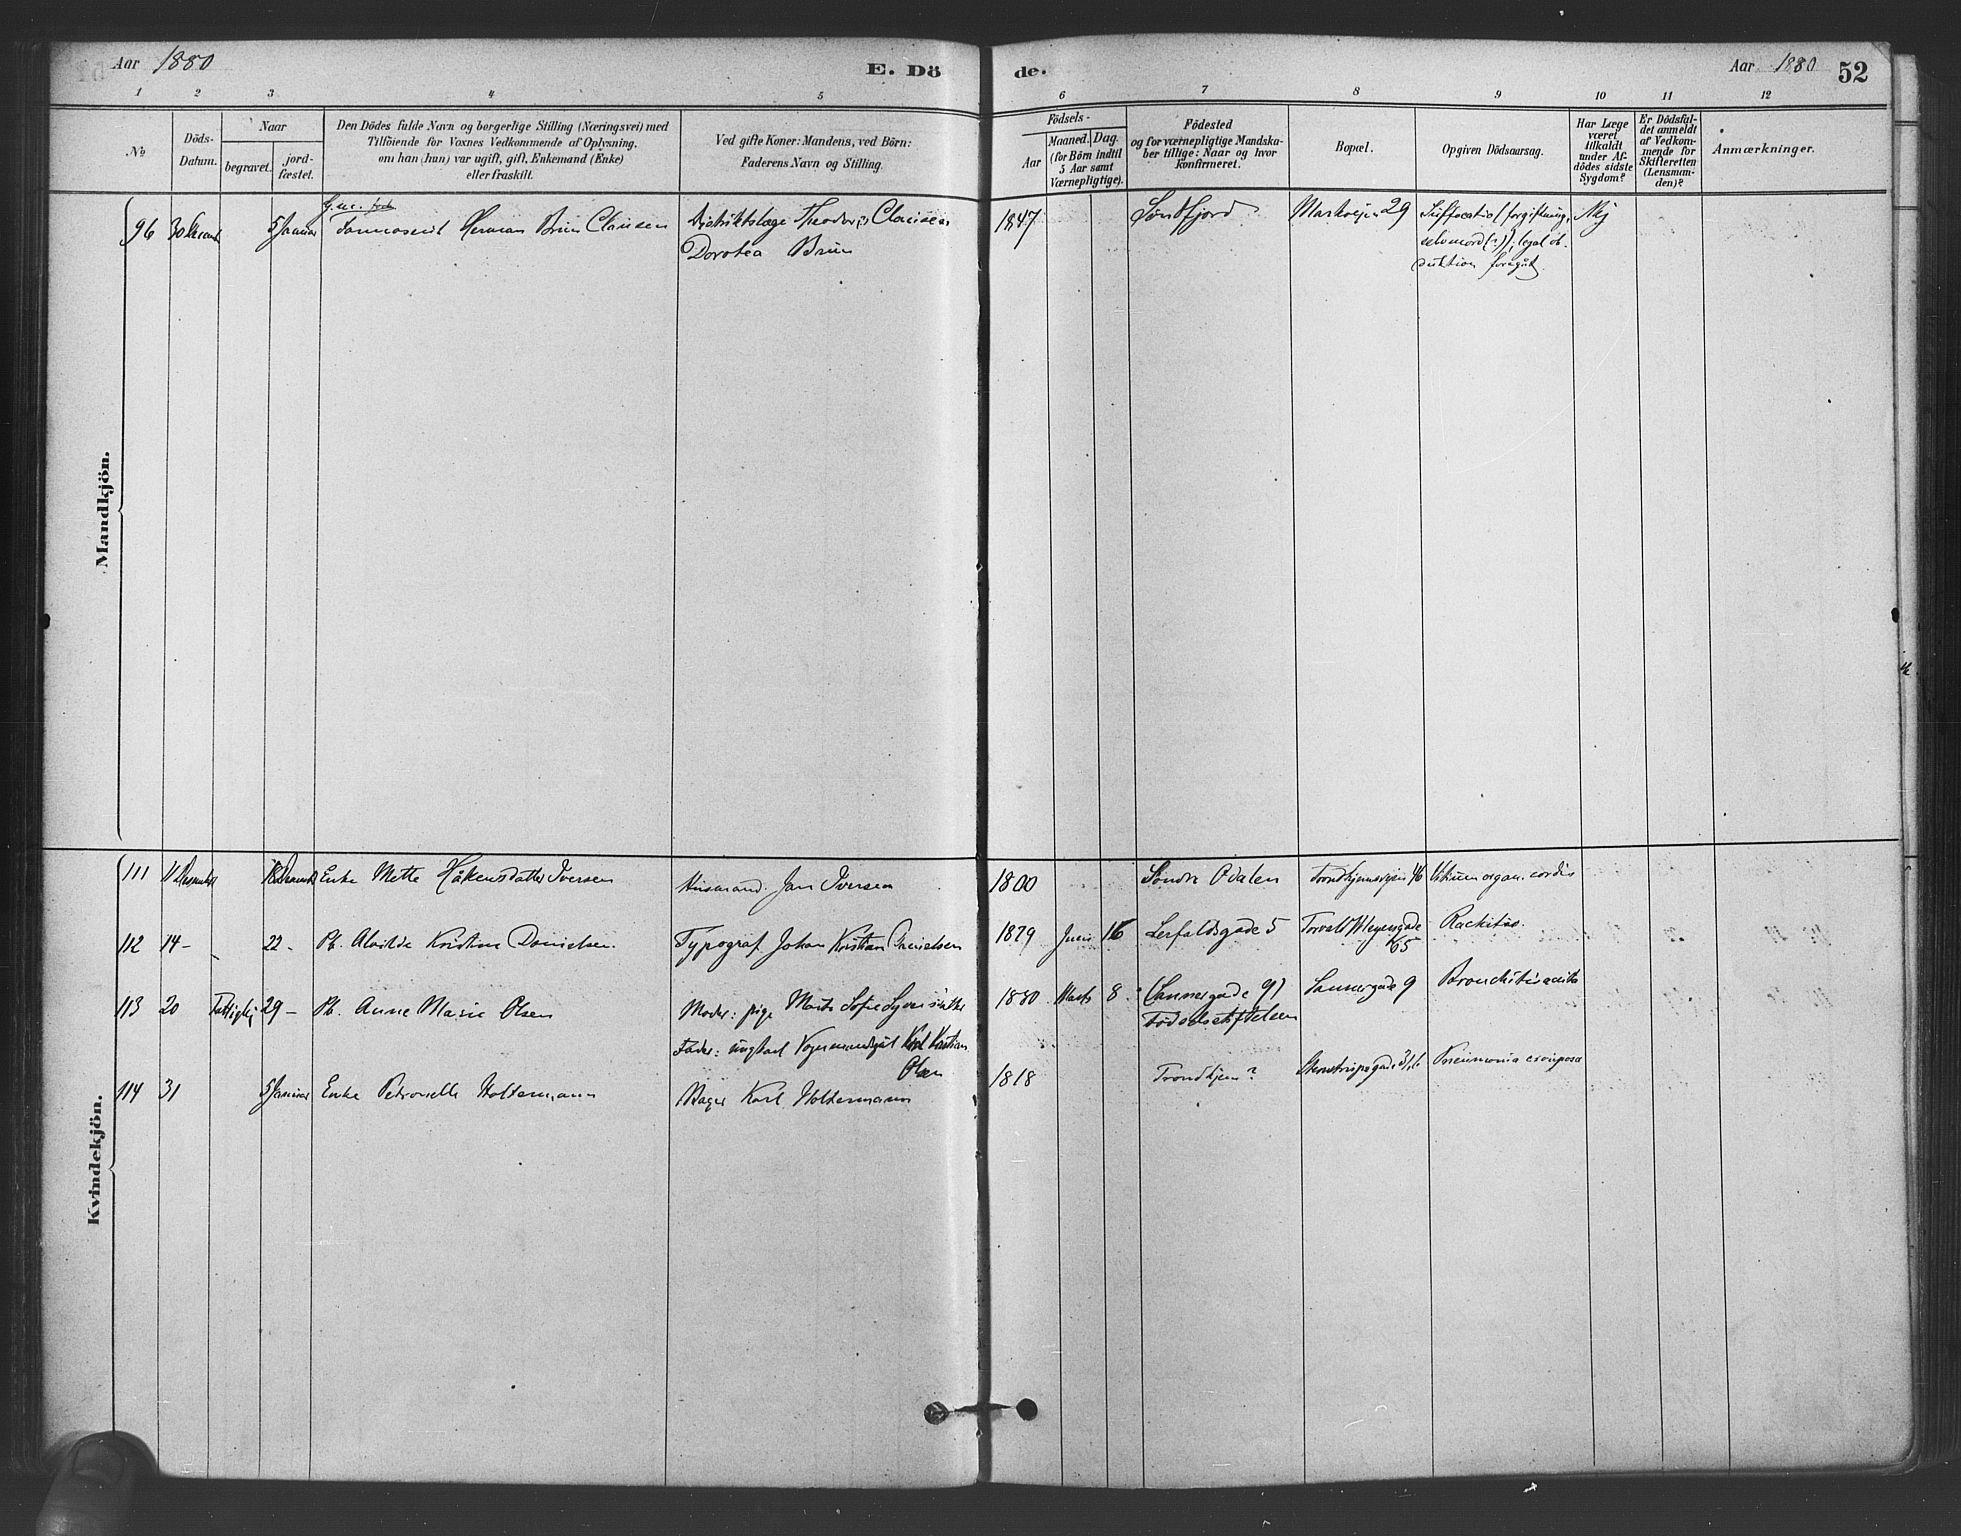 Aar 1880
E. Dö
de.
Aar 1880
52
1 2 3 4 5 6 7 8 9 10 11 12
No
Döds-
Datum.
Naar
begravet.
jord-
fæstet.
Den Dödes fulde Navn og borgerlige Stilling (Næringsvei) med
Tilföiende for Voxnes Vedkommende af Oplysning,
om han (hun) var ugift, gift, Enkemand (Enke)
eller fraskilt.
Ved gifte Koner: Mandens, ved Börn:
Faderens Navn og Stilling.
Födsels-
Aar
Maaned.
Dag.
(for Börn indtil
5 Aar samt
Værnepligtige).
Födested
og for værnepligtige Mandska-
ber tillige: Naar og hvor
konfirmeret.
Bopæl.
Opgiven Dödsaarsag.
Har Læge
været
tilkaldt
under Af-
dödes sidste
Sygdom?
Er Dödsfal-
det anmeldt
af Vedkom-
mende for
Skifteretten
(Lensman-
den)?
Anmærkninger.
Mandkjön.
96
5 Januar
Herman Bruun Clausen
Distriktslæge Theodor Clausen
Dorotea Bruun
1847
Söndfjord
Markvejen 29
Suffocatio (forgiftning,
selvmord (?)); legal ob-
duktion foregåt.
Nej
Kvindekjön.
111 11 Desember
Enke Mette Håkensdatter Iversen
Husmand Jan Iversen
1800
Söndre Odalen
Trondhjemsvejen 46
Vitium organ. cordis
112 14 - 22 -
Pb. Alvilde Kristine Danielsen
Typograf Johan Kristian Danielsen
1879 Juni 16
Lerfaldsgade 5
Torvald Meyersgade
65
Rackitis
113 20 Fattiglig 29 -
Pb. Anne Marie Olsen
Moder: pige
Fader: ungkarl
Olsen
1880 Marts 8
(Sannergade 9)
Födselsstiftelsen
Sannergade 9
Bronchitis acuta
114 31 5 Januar
Enke Petronelle Holtermann
Bager Karl Holtermann
1818
Trondhjem?
Pneumonia crouposa